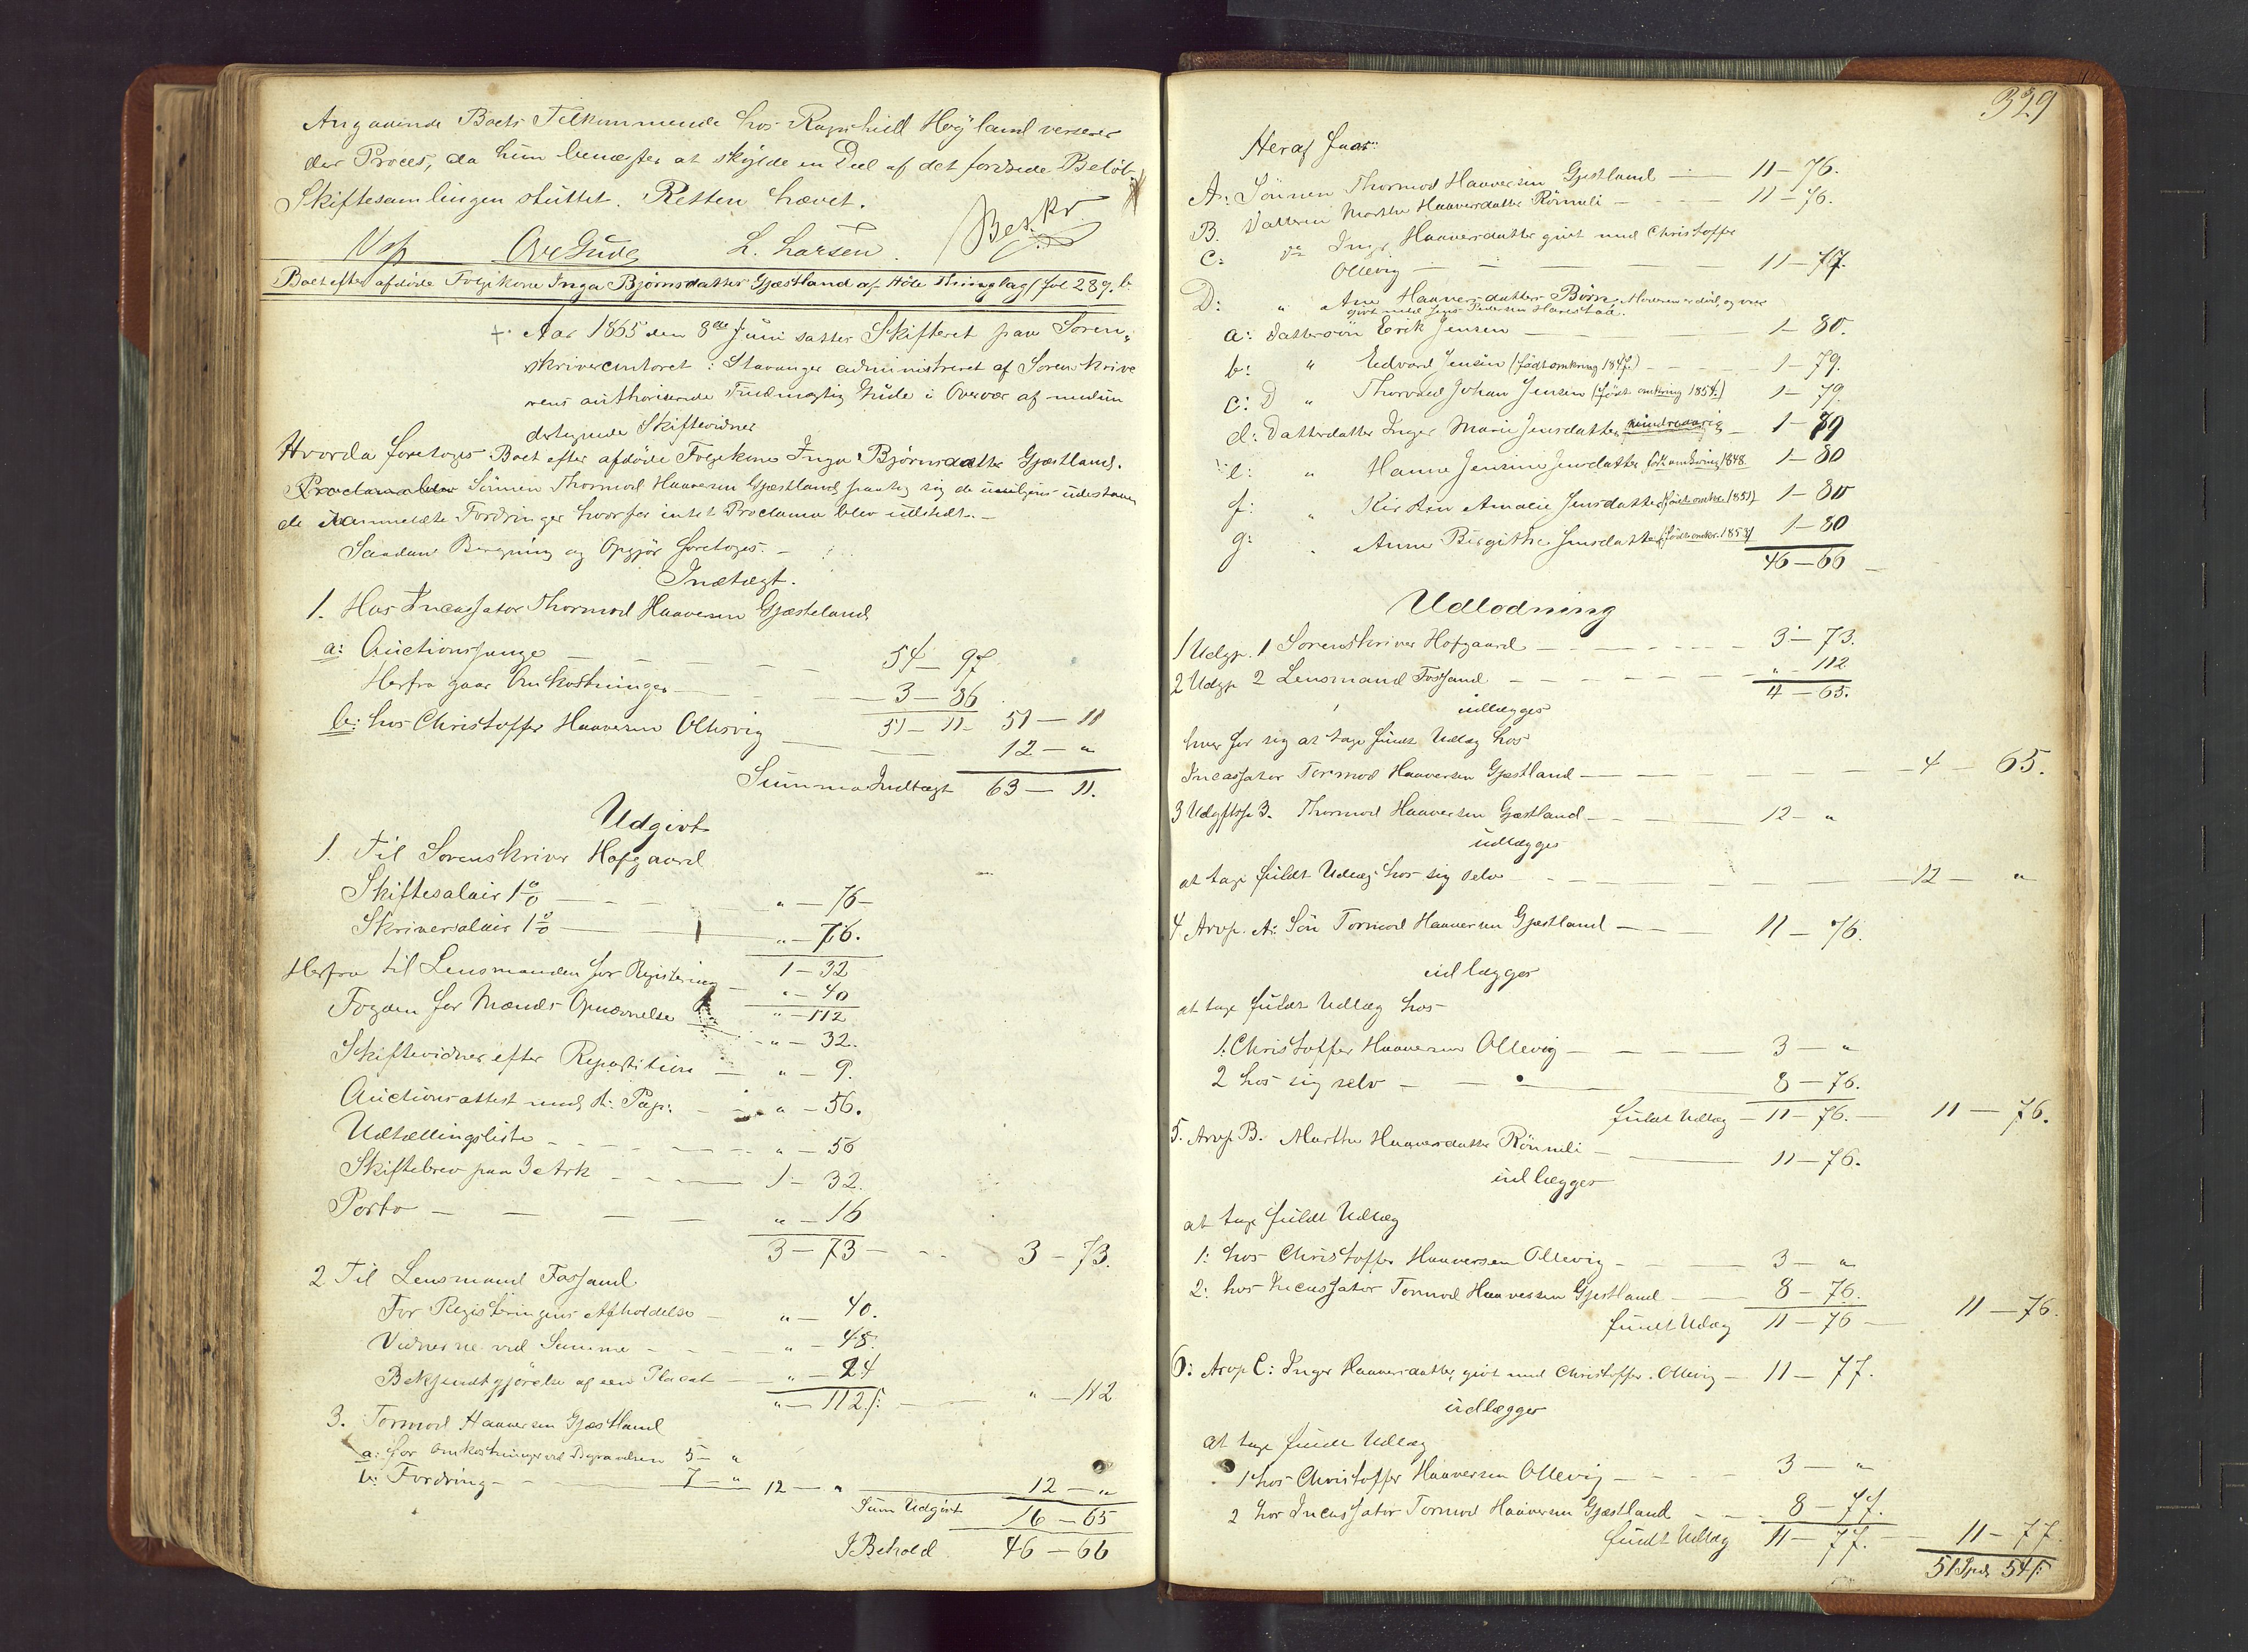 Angaaende Boets Tilkommende hos Ragnhild Høyland verserer
der Proces, da hun benægter at skylde en Deel af det fordrede Beløb.
Skiftesamlingen sluttet. Retten hævet.
Ove Gude L. Larsen. Beskr.
Boet efter afdøde Folgekone Inga Bjørnsdatter Gjæstland af Høle Thinglag /fol 289. b.
+. Aar 1865 den 8de Juni sattes Skifteret paa Soren-
skrivercontoret i Stavanger administreret af Sorenskrive
rens authoriserede Fuldmægtig Gude i Overvær af neden
dertegnede Skiftevidner
Hvorda foretoges Boet efter afdøde Folgekone Inga Bjørnsdatter Gjæstland.
Sönnen Thormod Haaversen Gjæstland paatog sig de muligens udestaaen
de uanmeldte Fordringer hvorfor intet Proclama blev udstedt. –
Saadan Beregning og Opgjör foretoges. –
Indtægt.
1. Hos Incassator Thormod Haaversen Gjæsteland
a: Auctionspenge – 54 – 97
Herfra gaar Omkostninger – 3 – 86
51 – 11 – 51 – 11
b: hos Christoffer Haaversen Oltesvig – 12 – "
Summa Indtægt 63 – 11.
Udgivt
1. Til Sorenskriver Hofgaard
Skiftesalair 1% – " – 76 –
Skriversalair 1% – " – 76.
1 – 32
Herfra til Lensmanden for Registering – " – 40
" – 112
Fogden for Mænds Opnævnelse – " – 32.
Skiftevidner efter Repartition – " – 9.
Auctionsattest med st: Pap: – " – 56.
Udtællingsliste – " – 56
Skiftebrev paa 3 Ark – 1 – 32.
Porto – " – 16
3 – 73 – 3 – 73.
2 Til Lensmand Fossand
For Registeringens Afholdelse – " – 40.
Vidnerne ved Samme – " – 48.
Bekjendtgjörelse af een Placat – " – 24
" – 112 ſ: – " – 112
3. Tormod Haaversen Gjæstland
a: for Omkostninger ved Begravelsen 5 – "
b: Fordring – 7 – " 12 – " 12 – "
Sum Udgivt 16 – 65
I Behold 46 – 66
329
Heraf faar:
A: Sönnen Thormod Haaversen Gjestland – 11 – 76.
B. Datteren Marthe Haaversdatter Rönneli – 11 – 76.
C: do Inger Haaversdatter givt med Christoffer
Ollevig – 11 – 77.
D: " Ane Haaversdatters Börn, Moderen er död, og var
givt med Jens Pedersen Harestad.
a: Dattersön Erik Jensen – 1 – 80.
b: " Edvard Jensen (født omkring 1847) – 1 – 79.
c: D " Thorvald Johan Jensen (født omkring 1854.) 1 – 79.
d: Datterdatter Inger Marie Jensdatter mindreaarig – 1 – 79
e: " Hanne Jensine Jensdatter født omkring 1848 1 – 80
f: " Kirsten Amalie Jensdatter (født omkr. 1851) 1 – 80
g: " Anne Birgithe Jensdatter (født omkr. 1853) 1 – 80
46 – 66
Udlodning
1 Udgp. 1 Sorenskriver Hofgaard – 3 – 73.
2 Udgp 2 Lensmand Fossand – " – 112
4 – 65.
udlægges
hver for sig at tage fuldt Udlæg hos
Incassator Tormod Haaversen Gjæstland – 4 – 65.
3 Udgiftsp 3. Thormod Haaversen Gjæstland – 12 – "
udlægges
at tage fuldt Udlæg hos sig selv – 12 – "
4. Arvp. A: Sön Tormod Haaversen Gjæstland – 11 – 76.
udlægges
at tage fuldt Udlæg hos
1. Christoffer Haaversen Ollevig – 3 – "
2 hos sig selv – 8 – 76.
fuldt Udlæg – 11 – 76. – 11 – 76.
5. Arvp B. Marthe Haaversdatter Rönneli – 11 – 76.
udlægges
at tage fuldt Udlæg
1: hos Christoffer Haaversen Ollevig – 3 – "
2: hos Incassator Tormod Haaversen Gjestland – 8 – 76.
fuldt Udlæg 11 – 76 – 11 – 76.
6: Arvp C: Inger Haaversdatter, givt med Christoffer Ollevig – 11 – 77.
udlægges
at tage fuldt Udlæg
1 hos Christoffer Haaversen Ollevig – 3 – "
2 hos Incassator Tormod Haaversen Gjæstland – 8 – 77.
fuldt Udlæg 11 – 77. – 11 – 77.
51 Spd. 54 ſ: